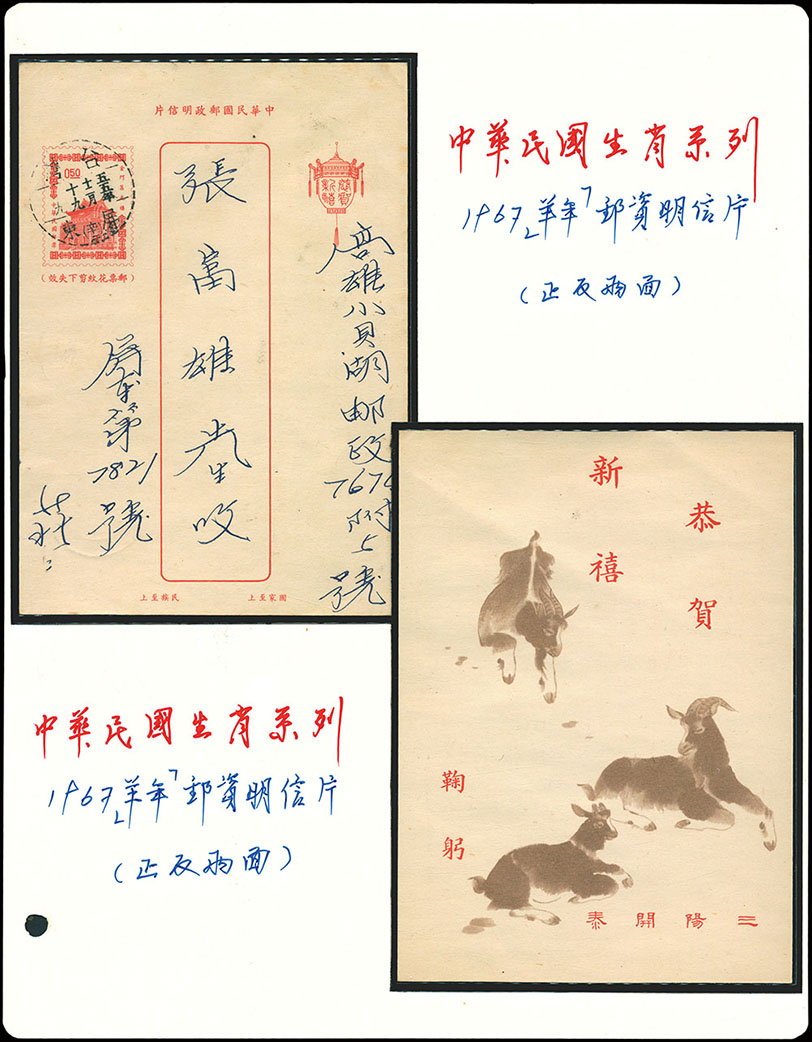 中華民國郵政明信片
恭賀新禧
0.50
(郵票花紋剪下失效)
高雄小貝湖郵政7674附5號
張富雄先生收
屏東第7821號
國家至上 民族至上
中華民國生肖系列
1967「羊年」郵資明信片
(正反兩面)
恭賀
新禧
鞠躬
三陽開泰
中華民國生肖系列
1967「羊年」郵資明信片
(正反兩面)